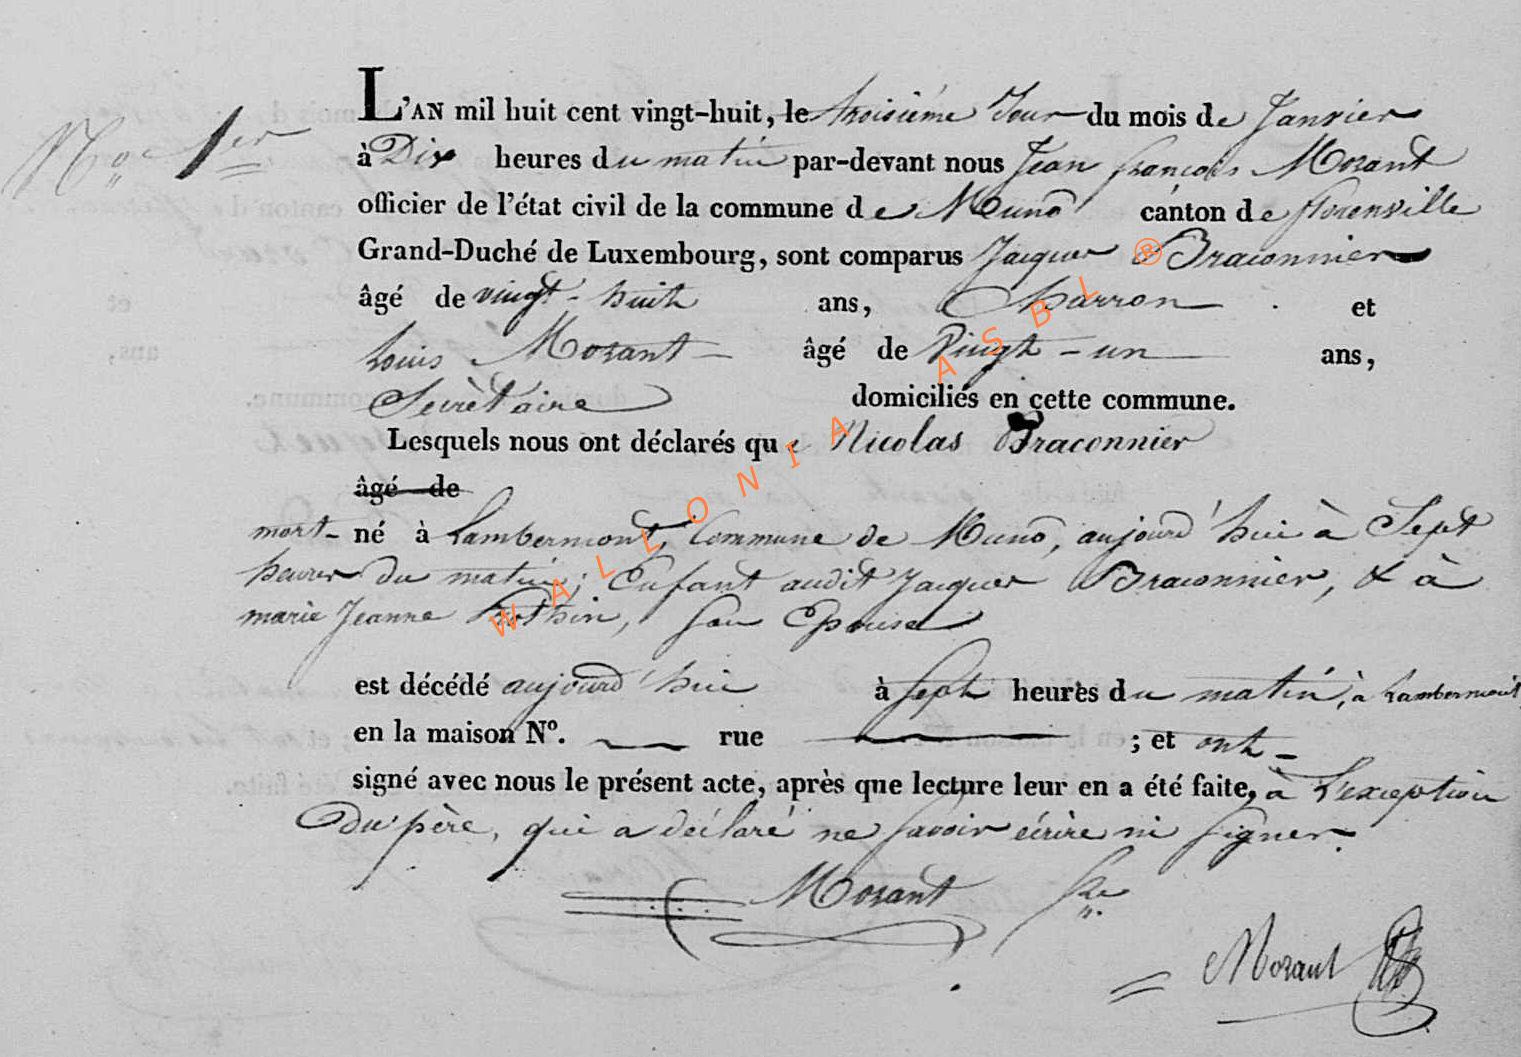 N.o 1er
L'AN mil huit cent vingt-huit, le troisième Jour du mois de Janvier
à Dix heures du matin par-devant nous Jean françois Mozant
officier de l'état civil de la commune de Muno canton de florenville
Grand-Duché de Luxembourg, sont comparus Jacques Braconnier
âgé de vingt-huit ans, Charron et
Louis Mozant âgé de Vingt-un ans,
Secrètaire domiciliés en cette commune.
Lesquels nous ont déclarés que Nicolas Braconnier
âgé de
mort-né à Lambermont, Commune de Muno, aujourd'hui à Sept
heures du matin; Enfant audit Jacques Braconnier, & à
marie Jeanne, Son Epouse
est décédé aujourd'hui à Sept heures du matin, à Lambermont,
en la maison N°. rue ; et ont
signé avec nous le présent acte, après que lecture leur en a été faite, à L'exception
Du père, qui a déclaré ne Savoir écrire ni Signer.
Mozant Sre
Mozant
WALLONIA ASBL ®